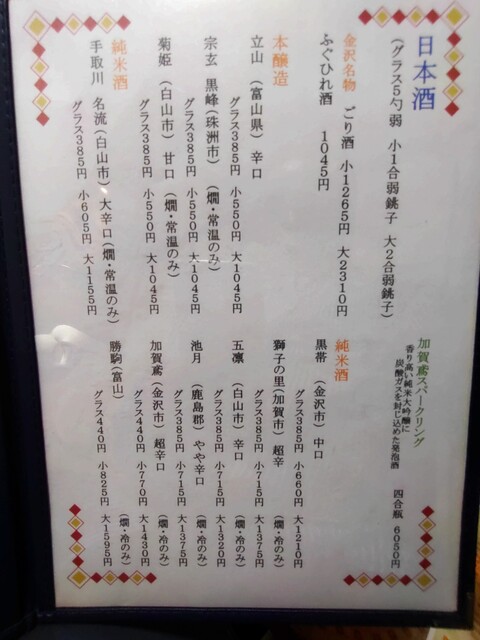 日本酒
(グラス5勺弱 小1合弱銚子 大2合弱銚子)
金沢名物 ごり酒 小1265円 大2310円
ふぐひれ酒 1045円
本醸造
立山 (富山県) 辛口
グラス385円 小550円 大1045円
宗玄 黒峰(珠洲市) (燗・常温のみ)
グラス385円 小550円 大1045円
菊姫 (白山市) 甘口 (燗・常温のみ)
グラス385円 小550円 大1045円
純米酒
手取川 名流(白山市) 大辛口(燗・常温のみ)
グラス385円 小605円 大1155円
加賀鳶スパークリング
香り高い純米大吟醸に
炭酸ガスを封じ込めた発泡酒
四合瓶 6050円
純米酒
黒帯 (金沢市) 中口
グラス385円 小660円 大1210円
獅子の里(加賀市) 超辛 (燗・冷のみ)
グラス385円 小715円 大1375円
五凛 (白山市) 辛口 (燗・冷のみ)
グラス385円 小715円 大1320円
池月 (鹿島郡) やや辛口 (燗・冷のみ)
グラス385円 小715円 大1375円
加賀鳶 (金沢市) 超辛口 (燗・冷のみ)
グラス440円 小770円 大1430円
勝駒(富山) (燗・冷のみ)
グラス440円 小825円 大1595円